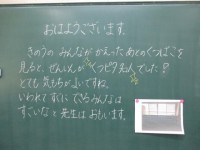 おはようございます。
きのうの みんなが かえったあとの くつばこを
見ると、ぜんいんが くつピタ名人でした!!
とても 気もちが いいですね。
いわれて すぐに できる みんなは
すごいな と 先生は おもいます。